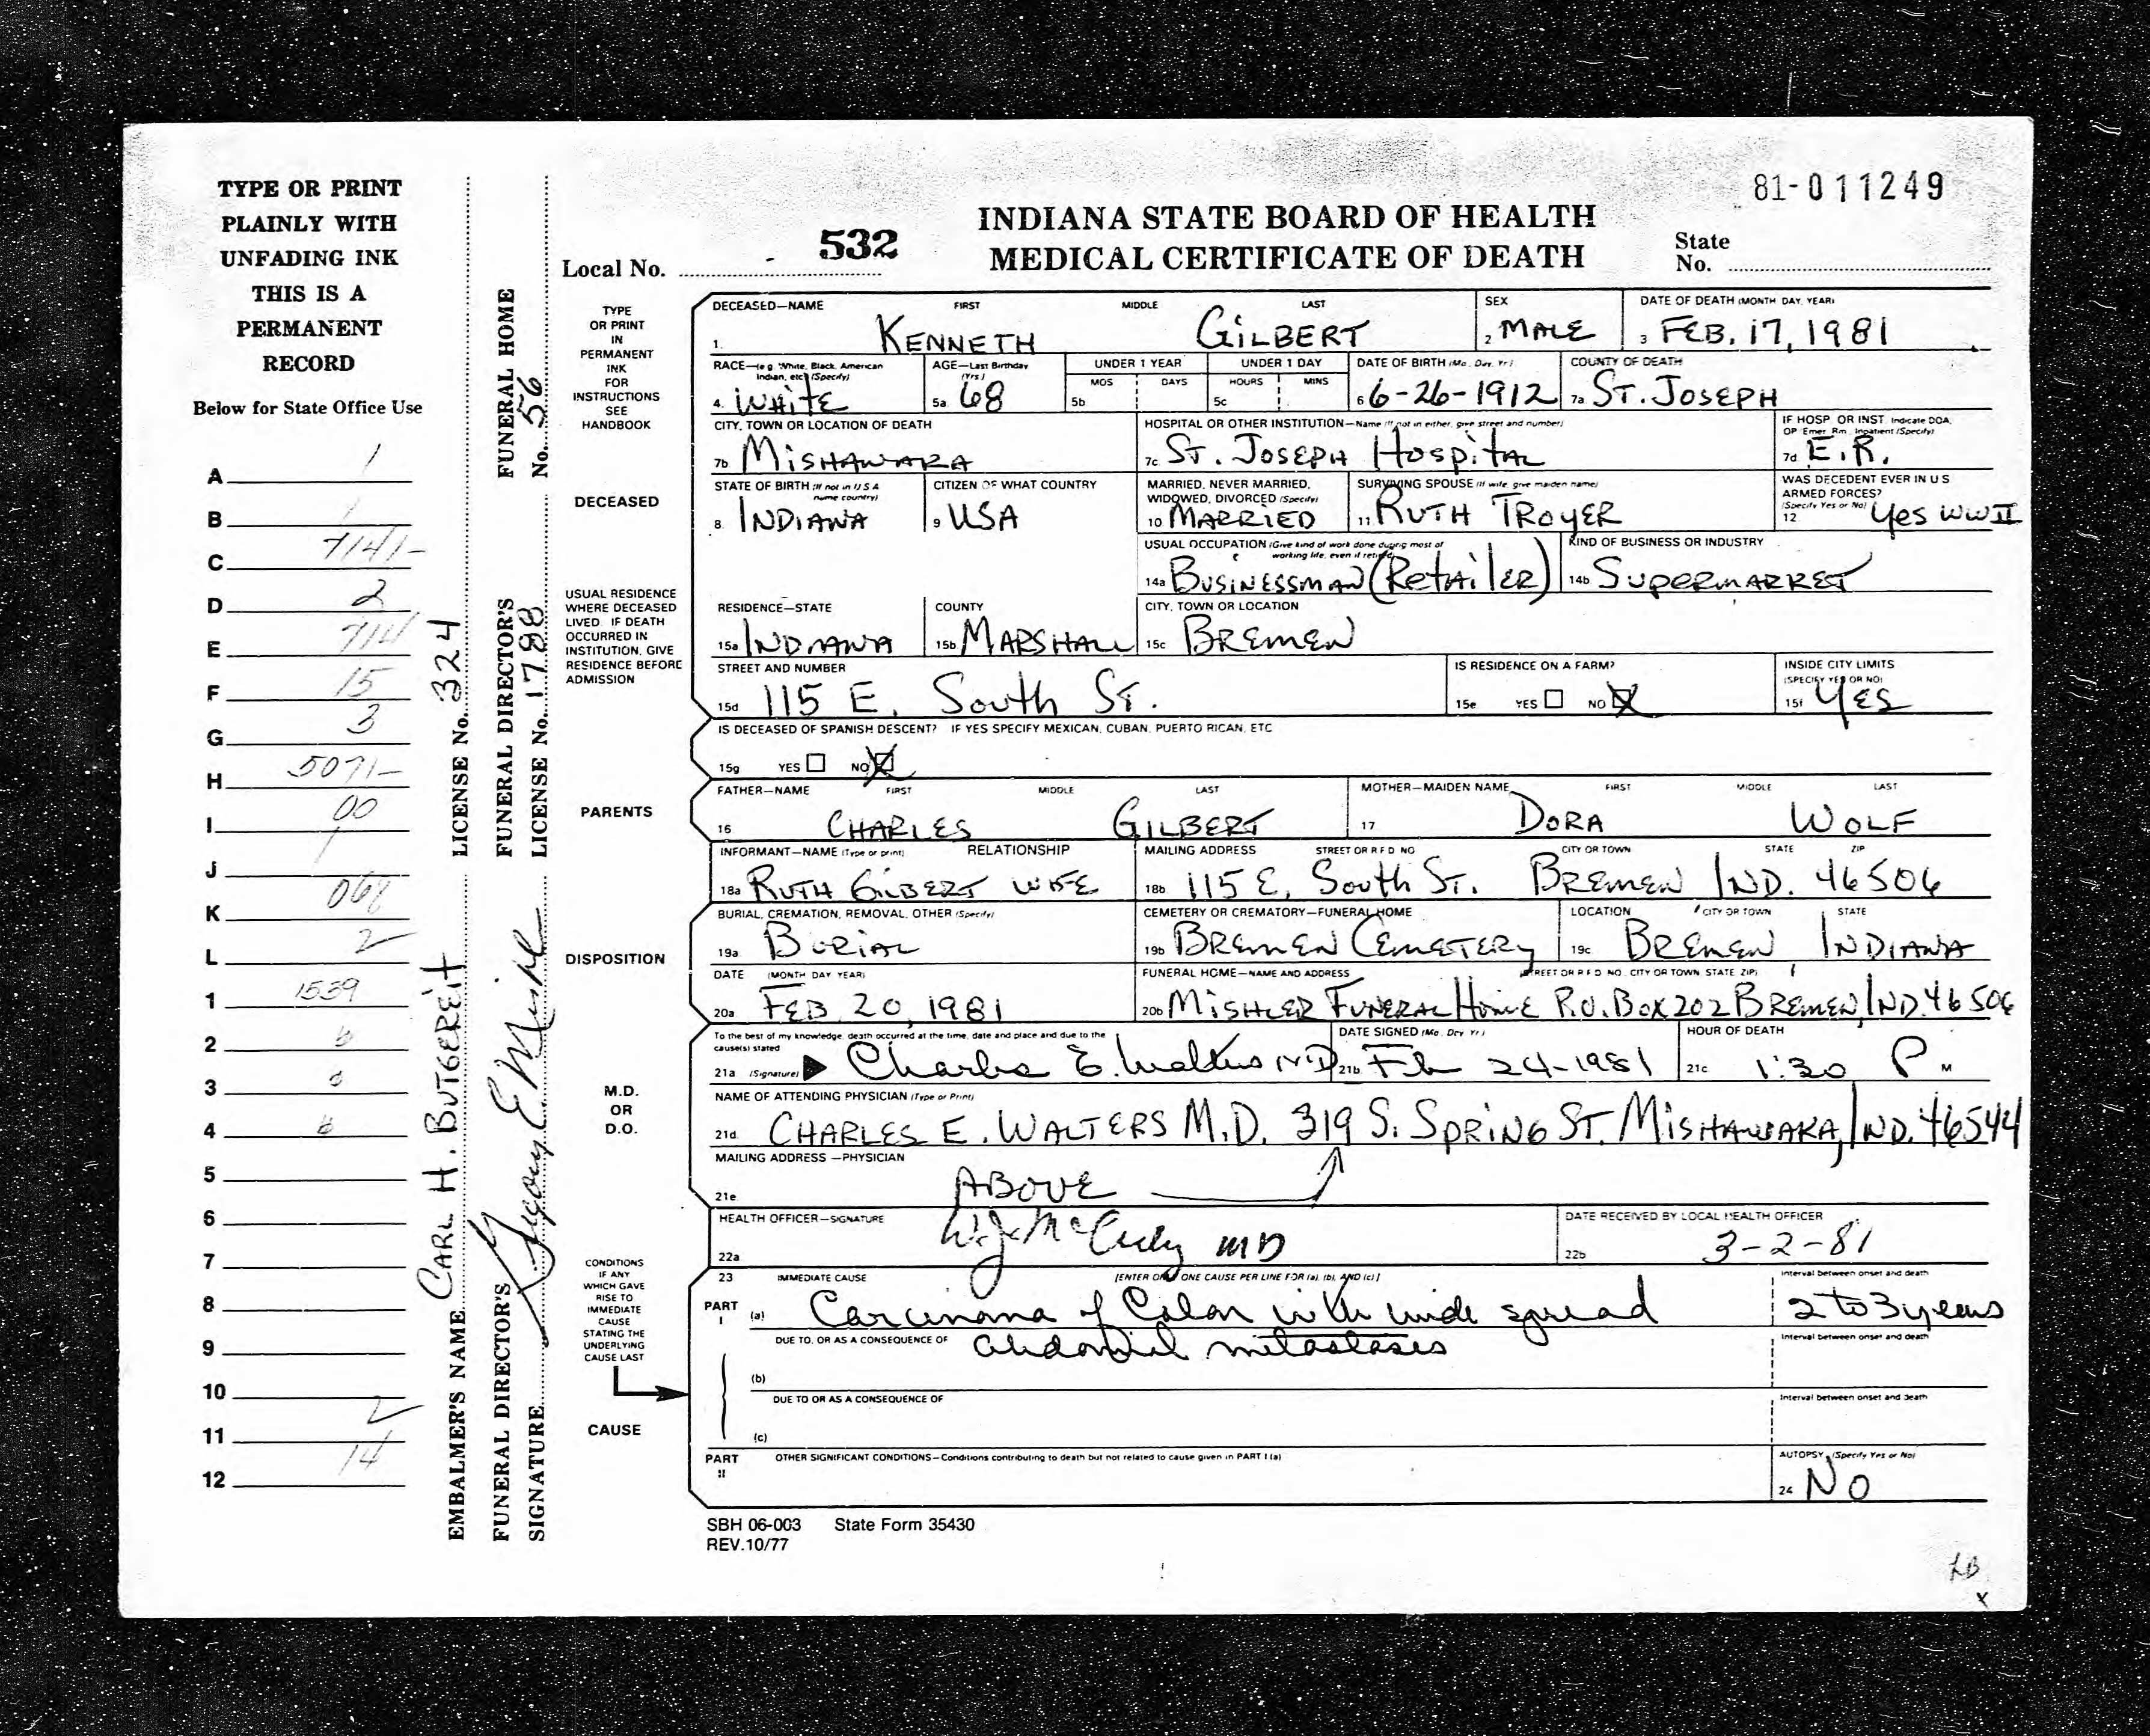 81-011249
INDIANA STATE BOARD OF HEALTH
MEDICAL CERTIFICATE OF DEATH
Local No. 532
State
No.
TYPE OR PRINT
PLAINLY WITH
UNFADING INK
THIS IS A
PERMANENT
RECORD
Below for State Office Use
A 1
B 1
C 7141-
D 2
E 714
F 15
G 3
H 5071-
I 00
J 1
K 068
L 2
1 1539
2 6
3 0
4 6
5
6
7
8
9
10
11 2
12 14
EMBALMER'S NAME CARL H. BUTGEREIT LICENSE No. 324
FUNERAL DIRECTOR'S
SIGNATURE
FUNERAL DIRECTOR'S
LICENSE No. 1788
FUNERAL HOME
No. 56
TYPE
OR PRINT
IN
PERMANENT
INK
FOR
INSTRUCTIONS
SEE
HANDBOOK
DECEASED
USUAL RESIDENCE
WHERE DECEASED
LIVED IF DEATH
OCCURRED IN
INSTITUTION, GIVE
RESIDENCE BEFORE
ADMISSION
PARENTS
DISPOSITION
M.D.
OR
D.O.
CONDITIONS
IF ANY
WHICH GAVE
RISE TO
IMMEDIATE
CAUSE
STATING THE
UNDERLYING
CAUSE LAST
CAUSE
DECEASED—NAME FIRST MIDDLE LAST SEX DATE OF DEATH (MONTH DAY, YEAR)
1. KENNETH GILBERT 2 MALE 3 FEB. 17, 1981
RACE—(e g White, Black, American Indian, etc) (Specify) AGE—Last Birthday (Yrs) UNDER 1 YEAR UNDER 1 DAY DATE OF BIRTH (Mo. Day, Yr) COUNTY OF DEATH
MOS DAYS HOURS MINS
4. WHITE 5a 68 5b 5c 6 6-26-1912 7a ST. JOSEPH
CITY, TOWN OR LOCATION OF DEATH HOSPITAL OR OTHER INSTITUTION—Name (If not in either, give street and number) IF HOSP OR INST Indicate DOA, OP Emer Rm, Inpatient (Specify)
7b MISHAWAKA 7c ST. JOSEPH HOSPITAL 7d E.R.
STATE OF BIRTH (If not in U S A name country) CITIZEN OF WHAT COUNTRY MARRIED, NEVER MARRIED, WIDOWED, DIVORCED (Specify) SURVIVING SPOUSE (If wife, give maiden name) WAS DECEDENT EVER IN U S ARMED FORCES? (Specify Yes or No)
8. INDIANA 9 USA 10 MARRIED 11. RUTH TROYER 12 Yes WW II
USUAL OCCUPATION (Give kind of work done during most of working life, even if retired) KIND OF BUSINESS OR INDUSTRY
14a BUSINESSMAN (RETAILER) 14b SUPERMARKET
RESIDENCE—STATE COUNTY CITY, TOWN OR LOCATION
15a INDIANA 15b MARSHALL 15c BREMEN
STREET AND NUMBER IS RESIDENCE ON A FARM? INSIDE CITY LIMITS (SPECIFY YES OR NO)
15d 115 E. South ST. 15e YES NO X 15f YES
IS DECEASED OF SPANISH DESCENT? IF YES SPECIFY MEXICAN, CUBAN, PUERTO RICAN, ETC
15g YES NO X
FATHER—NAME FIRST MIDDLE LAST MOTHER—MAIDEN NAME FIRST MIDDLE LAST
16 CHARLES GILBERT 17 DORA WOLF
INFORMANT—NAME (Type or print) RELATIONSHIP MAILING ADDRESS STREET OR R F D NO CITY OR TOWN STATE ZIP
18a RUTH GILBERT WIFE 18b 115 E. South ST. BREMEN IND. 46506
BURIAL, CREMATION, REMOVAL, OTHER (Specify) CEMETERY OR CREMATORY—FUNERAL HOME LOCATION CITY OR TOWN STATE
19a BURIAL 19b BREMEN CEMETERY 19c BREMEN INDIANA
DATE (MONTH DAY YEAR) FUNERAL HOME—NAME AND ADDRESS (STREET OR R F D NO, CITY OR TOWN STATE ZIP)
20a FEB 20, 1981 20b MISHLER FUNERAL HOME P.O. BOX 202 BREMEN, IND. 46506
To the best of my knowledge, death occurred at the time, date and place and due to the cause(s) stated DATE SIGNED (Mo. Day Yr) HOUR OF DEATH
21a (Signature) Charles E. Walters M.D. 21b Feb 24-1981 21c 1:30 P M
NAME OF ATTENDING PHYSICIAN (Type or Print)
21d. CHARLES E. WALTERS M.D. 319 S. SPRING ST. MISHAWAKA, IND. 46544
MAILING ADDRESS —PHYSICIAN
21e ABOVE
HEALTH OFFICER—SIGNATURE DATE RECEIVED BY LOCAL HEALTH OFFICER
22a MD 22b 3-2-81
23 IMMEDIATE CAUSE [ENTER ONLY ONE CAUSE PER LINE FOR (a), (b), AND (c)] Interval between onset and death
PART I (a) Carcinoma of Colon with wide spread 2 to 3 years
DUE TO, OR AS A CONSEQUENCE OF abdominal metastases Interval between onset and death
(b)
DUE TO OR AS A CONSEQUENCE OF Interval between onset and death
(c)
PART II OTHER SIGNIFICANT CONDITIONS—Conditions contributing to death but not related to cause given in PART I (a) AUTOPSY (Specify Yes or No)
24 NO
SBH 06-003 State Form 35430
REV.10/77